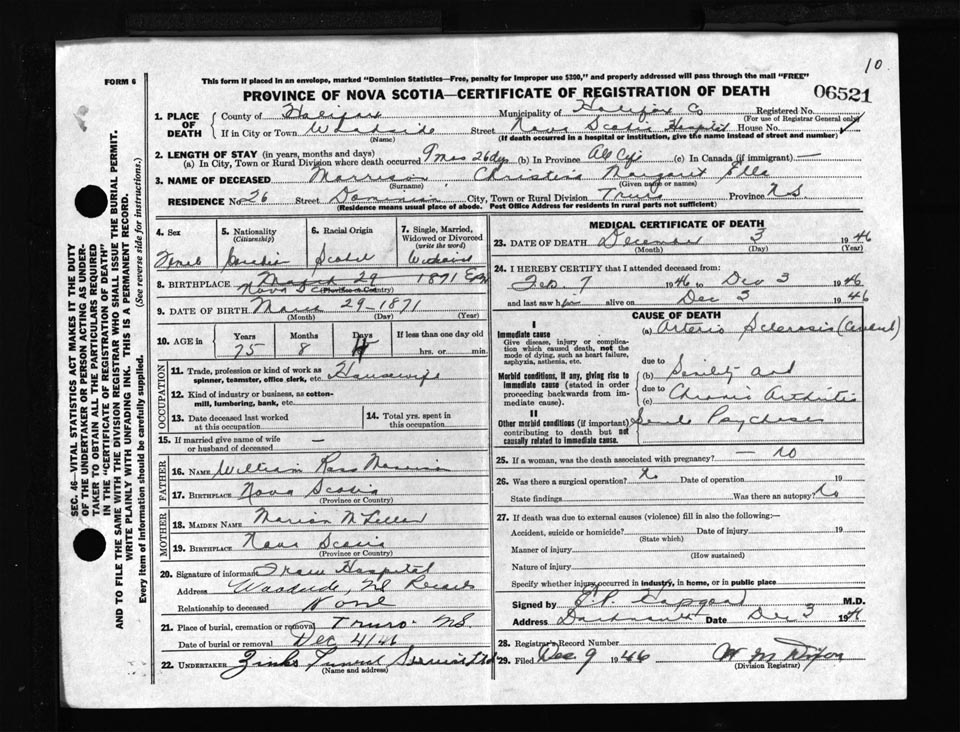 10.
FORM 6
This form if placed in an envelope, marked "Dominion Statistics—Free, penalty for improper use $300," and properly addressed will pass through the mail "FREE"
PROVINCE OF NOVA SCOTIA—CERTIFICATE OF REGISTRATION OF DEATH
06521
SEC. 46—VITAL STATISTICS ACT MAKES IT THE DUTY
OF THE UNDERTAKER OR PERSON ACTING AS UNDER-
TAKER TO OBTAIN ALL THE PARTICULARS REQUIRED
IN THE "CERTIFICATE OF REGISTRATION OF DEATH"
AND TO FILE THE SAME WITH THE DIVISION REGISTRAR WHO SHALL ISSUE THE BURIAL PERMIT.
WRITE PLAINLY WITH UNFADING INK. THIS IS A PERMANENT RECORD.
Every item of information should be carefully supplied. (See reverse side for instructions.)
1. PLACE OF DEATH
County of Halifax Municipality of Halifax Co Registered No.
(For use of Registrar General only)
If in City or Town Street Nova Scotia Hospital House No.
(Name) (If death occurred in a hospital or institution, give the name instead of street and number)
2. LENGTH OF STAY (in years, months and days)
(a) In City, Town or Rural Division where death occurred 9 mos 26 dys (b) In Province (c) In Canada (if immigrant) —
3. NAME OF DECEASED Morrison Christina Margaret Ella
(Surname) (Given name or names)
RESIDENCE No. 26 Street Dominion City, Town or Rural Division Truro Province N S
(Residence means usual place of abode. Post Office Address for residents in rural parts not sufficient)
4. Sex
5. Nationality
(Citizenship)
6. Racial Origin
7. Single, Married,
Widowed or Divorced
(write the word)
8. BIRTHPLACE March 29 1871
Nova Sc (Province or Country)
9. DATE OF BIRTH March 29-1871
(Month) (Day) (Year)
10. AGE in
Years Months Days If less than one day old
75 8 4 hrs. or min.
OCCUPATION
11. Trade, profession or kind of work as
spinner, teamster, office clerk, etc. Housewife
12. Kind of industry or business, as cotton-
mill, lumbering, bank, etc.
13. Date deceased last worked
at this occupation
14. Total yrs. spent in
this occupation
15. If married give name of wife
or husband of deceased —
FATHER
16. NAME William Ross
17. BIRTHPLACE Nova Scotia
(Province or Country)
MOTHER
18. MAIDEN NAME Marion
19. BIRTHPLACE Nova Scotia
(Province or Country)
20. Signature of informant From Hospital
Address Woodside, NS
Relationship to deceased None
21. Place of burial, cremation or removal Truro NS.
Date of burial or removal Dec 4/46
22. UNDERTAKER Zinks Funeral Service Ltd
(Name and address)
MEDICAL CERTIFICATE OF DEATH
23. DATE OF DEATH December 3 1946
(Month) (Day) (Year)
24. I HEREBY CERTIFY that I attended deceased from:
Feb. 7 1946 to Dec 3 1946
and last saw her alive on Dec 3 1946
CAUSE OF DEATH
I
Immediate cause
Give disease, injury or complica-
tion which caused death, not the
mode of dying, such as heart failure,
asphyxia, asthenia, etc.
(a) Arterio Sclerosis (Cerebral)
due to
Morbid conditions, if any, giving rise to
immediate cause (stated in order
proceeding backwards from im-
mediate cause).
(b) Senility and
due to
(c) Chronic Arthritis
II
Other morbid conditions (if important)
contributing to death but not
causally related to immediate cause.
Senile Psychosis
25. If a woman, was the death associated with pregnancy? — No
26. Was there a surgical operation? No Date of operation 19
State findings Was there an autopsy? No
27. If death was due to external causes (violence) fill in also the following:—
Accident, suicide or homicide? Date of injury 19
(State which)
Manner of injury
(How sustained)
Nature of injury
Specify whether injury occurred in industry, in home, or in public place
Signed by M.D.
Address Dartmouth Date Dec 3 1946
28. Registrar's Record Number
29. Filed Dec 9 1946 W M Dixon
(Division Registrar)